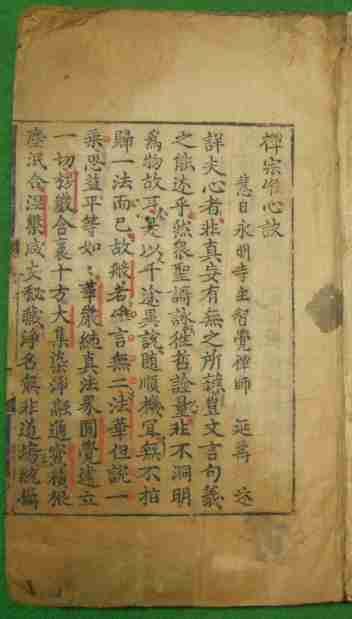 禪宗唯心訣
慧日永明寺主智覺禪師 延壽 述
詳夫心者非真妄有無之所豈文言句義
之能述乎然衆聖謌詠往哲詮量非不洞明
爲物故耳是以千途異說隨順機宜無不指
歸一法而已故般若唯言無二法華但說一
乘思益平等如〻華嚴純真法界圓覺建立
一切楞嚴含裹十方大集染淨融通寶積根
塵泯合涅槃咸安秘藏淨名無非道場統攝